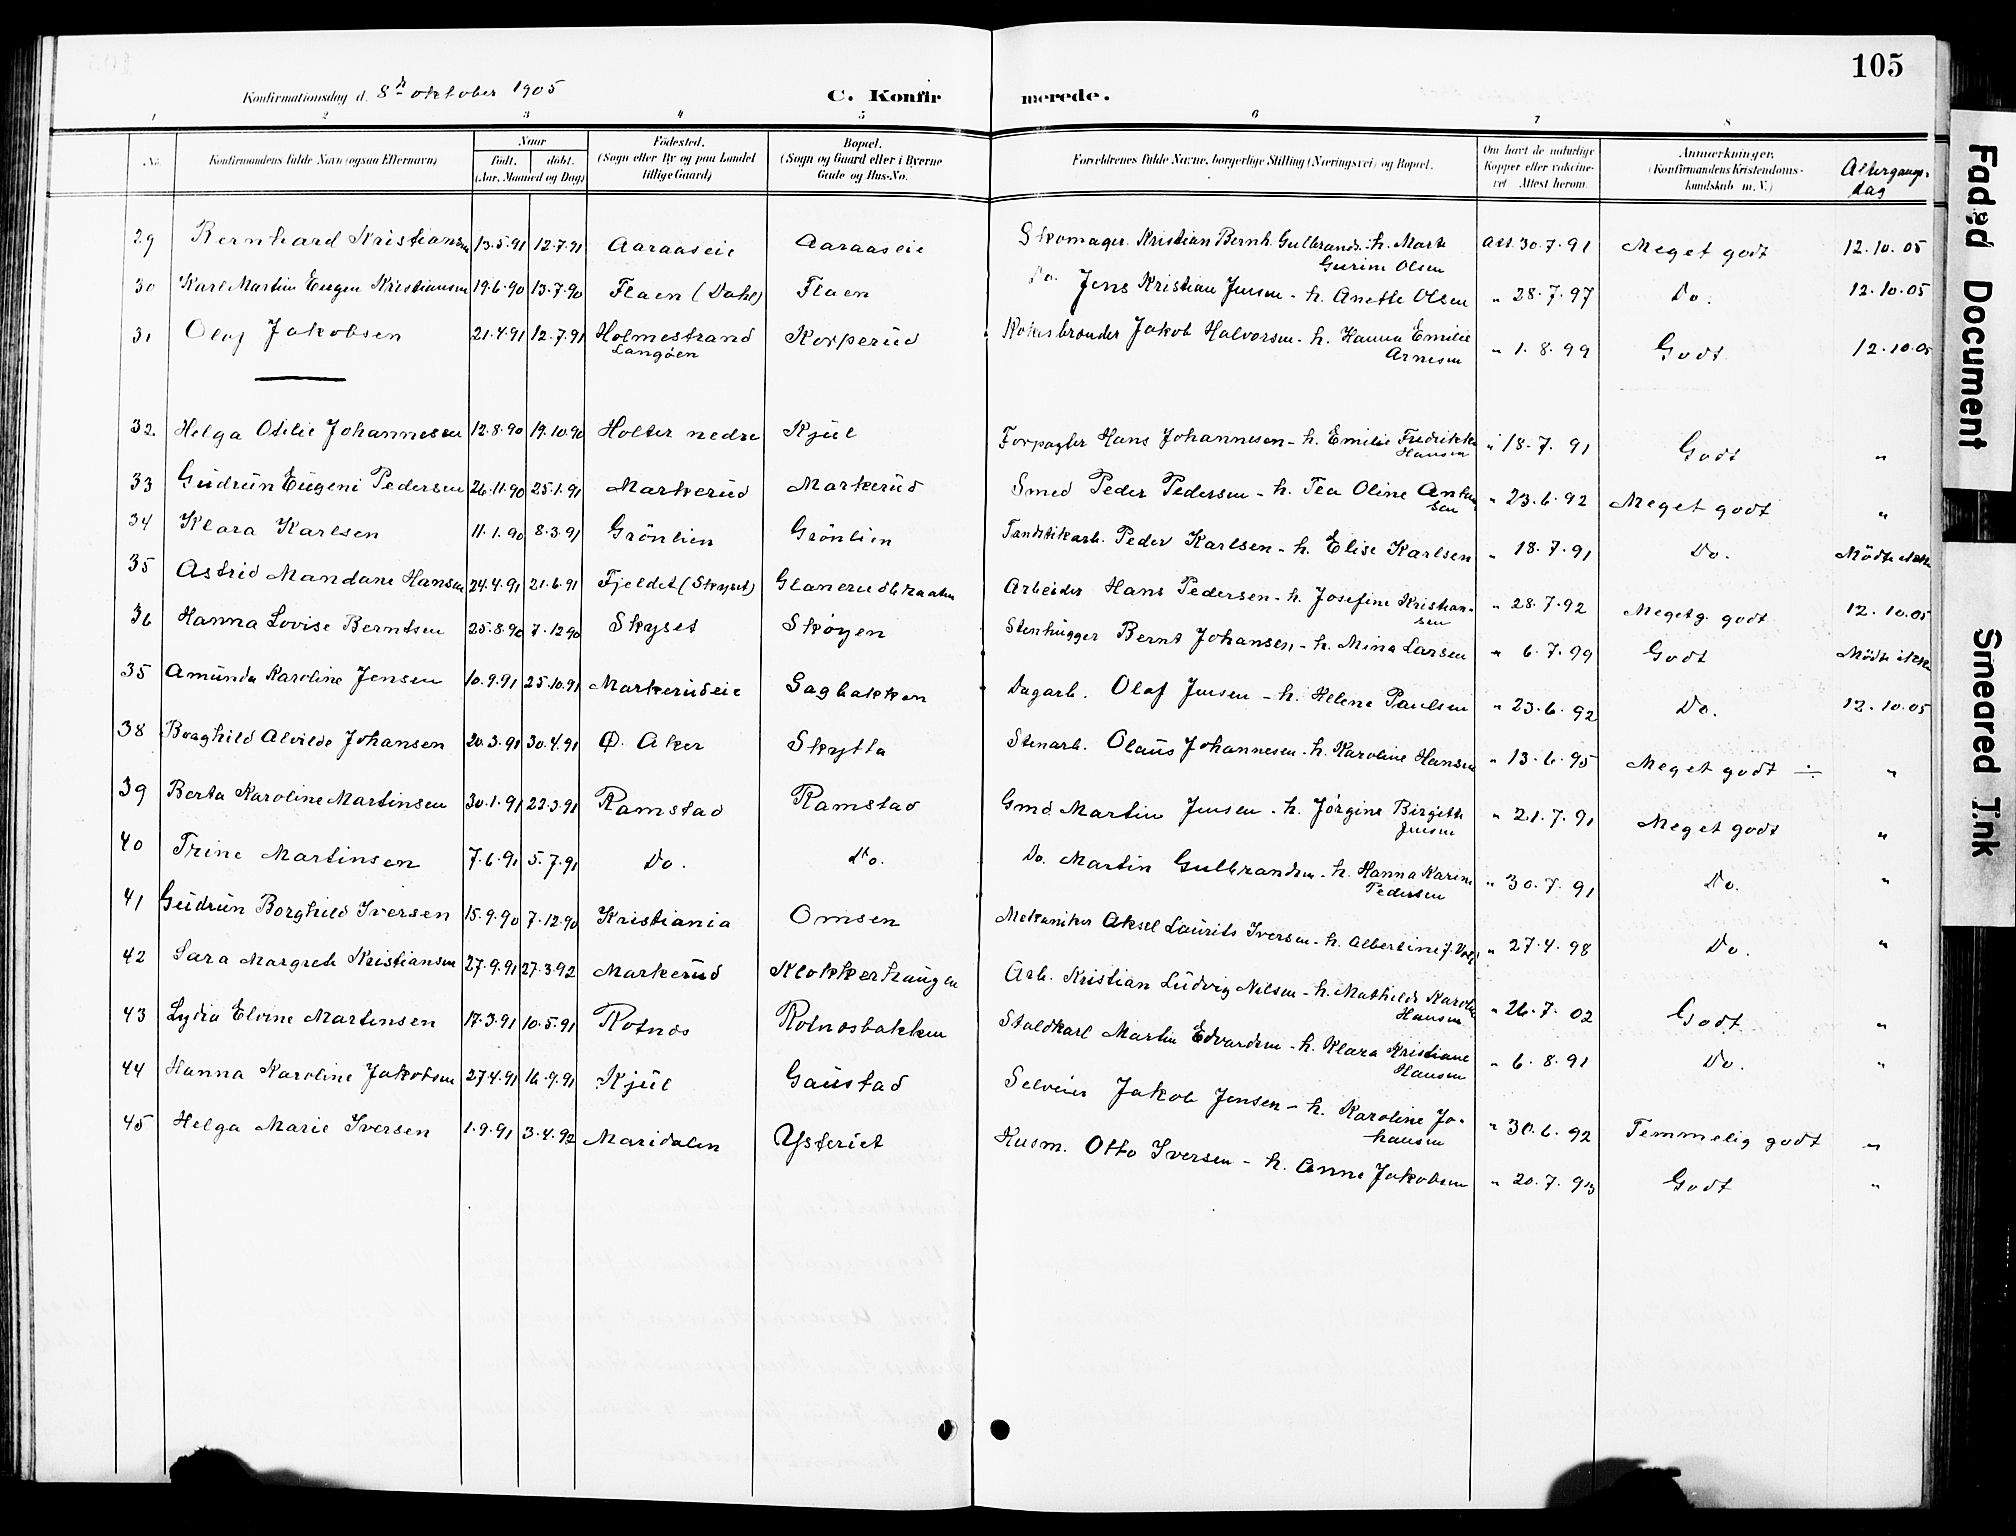 105
Konfirmationsdag d. 8de oktober 1905
C. Konfirmerede.
1 2 3 4 5 6 7 8
No. Konfirmandens fulde Navn (ogsaa Efternavn) Naar født. døbt. (Aar, Maaned og Dag) Fødested. (Sogn eller By og paa Landet tillige Gaard) Bopæl. (Sogn og Gaard eller i Byerne Gade og Hus-No. Forældrenes fulde Navne, borgerlige Stilling (Næringsvei) og Bopæl. Om havt de naturlige Kopper eller vakcineret Attest herom. Anmærkninger. (Konfirmandens Kristendomskundskab m. V.) Altergangsdag
29 Bernhard Kristiansen 13.5.91 12.7.91 Aaraaseie Aaraaseie Skomager Kristian Bernh. Gulbrands. - h. Marte Gurine Olsen att. 30.7.91 Meget godt 12.10.05
30 Karl Martin Eugen Kristiansen 19.6.90 13.7.90 Flaen (Dahl) Flaen Do. Jens Kristian Jensen - h. Anette Olsen " 28.7.97 Do. 12.10.05
31 Olaf Jakobsen 21.4.91 12.7.91 Holmestrand Langøen Korperud Koksbrænder Jakob Halvorsen - h. Hanna Emilie Arnesen " 1.8.99 Godt 12.10.05
32. Helga Otilie Johannesen 12.8.90 19.10.90 Holter nedre Kjul Forpagter Hans Johannesen - h. Emilie Fredrikke Hansen " 18.7.91 Godt "
33 Gudrun Eugeni Pedersen 26.11.90 25.1.91 Markerud Markerud Smed Peder Pedersen - h. Tea Oline " 23.6.92 Meget godt "
34 Klara Karlsen 11.1.90 8.3.91 Grönlien Grönlien Tændstikarb. Peder Karlsen - h. Elise Karlsen " 18.7.91 Do. Mödte ikke
35 Astrid Mandane Hansen 24.4.91 21.6.91 Fjeldet (Skyset) Glanerudbraaten Arbeider Hans Pedersen - h. Josefine Kristiansen " 28.7.92 Meget g. godt 12.10.05
36 Hanna Lovise Berntsen 25.8.90 7.12.90 Skyset Skøyen Stenhugger Bernt Johansen - h. Mina Larsen " 6.7.99 Godt Mödte ikke
35 Amunda Karoline Jensen 10.9.91 25.10.91 Markerudeie Sagbakken Dagarb. Olaf Jensen - h. Helene Paulsen " 23.6.92 Do. 12.10.05
38 Borghild Alvilde Johansen 20.3.91 30.4.91 Ø. Aker Skytta Stenarb. Olaus Johannesen - h. Karoline Hansen " 13.6.95 Meget godt ÷ "
39 Berta Karoline Martinsen 30.1.91 22.3.91 Ramstad Ramstad Gmd Martin Jensen - h. Jørgine Birgitte Jensen " 21.7.91 Meget godt "
40 Trine Martinsen 7.6.91 5.7.91 Do. Do. Do. Martin Gulbrandsen - h. Hanna Karine Pedersen " 30.7.91 Do. "
41 Gudrun Borghild Iversen 15.9.90 7.12.90 Kristiania Omsen Mekaniker Aksel Laurits Iversen - h. Albertine J. " 27.4.98 Do. "
42 Sara Margrete Kristiansen 27.9.91 27.3.92 Markerud Klokkerhaugen Arb. Kristian Ludvig Nilsen - h. Mathilde Karoline Hansen " 26.7.02 Godt "
43 Lydia Elvine Martinsen 17.3.91 10.5.91 Rotnes Rotnesbakken Staldkarl Martin Edvardsen - h. Klara Kristiane Hansen " 6.8.91 Do. "
44 Hanna Karoline Jakobsen 27.4.91 16.9.91 Kjul Gaustad Selveier Jakob Jensen - h. Karoline Johansen " 30.6.92 Temmelig godt "
45 Helga Marie Iversen 1.9.91 3.4.92 Maridalen Ysteriet Husm. Otto Iversen - h. Anne Jakobsen " 20.7.93 Godt "
Faded Document
Smeared Ink